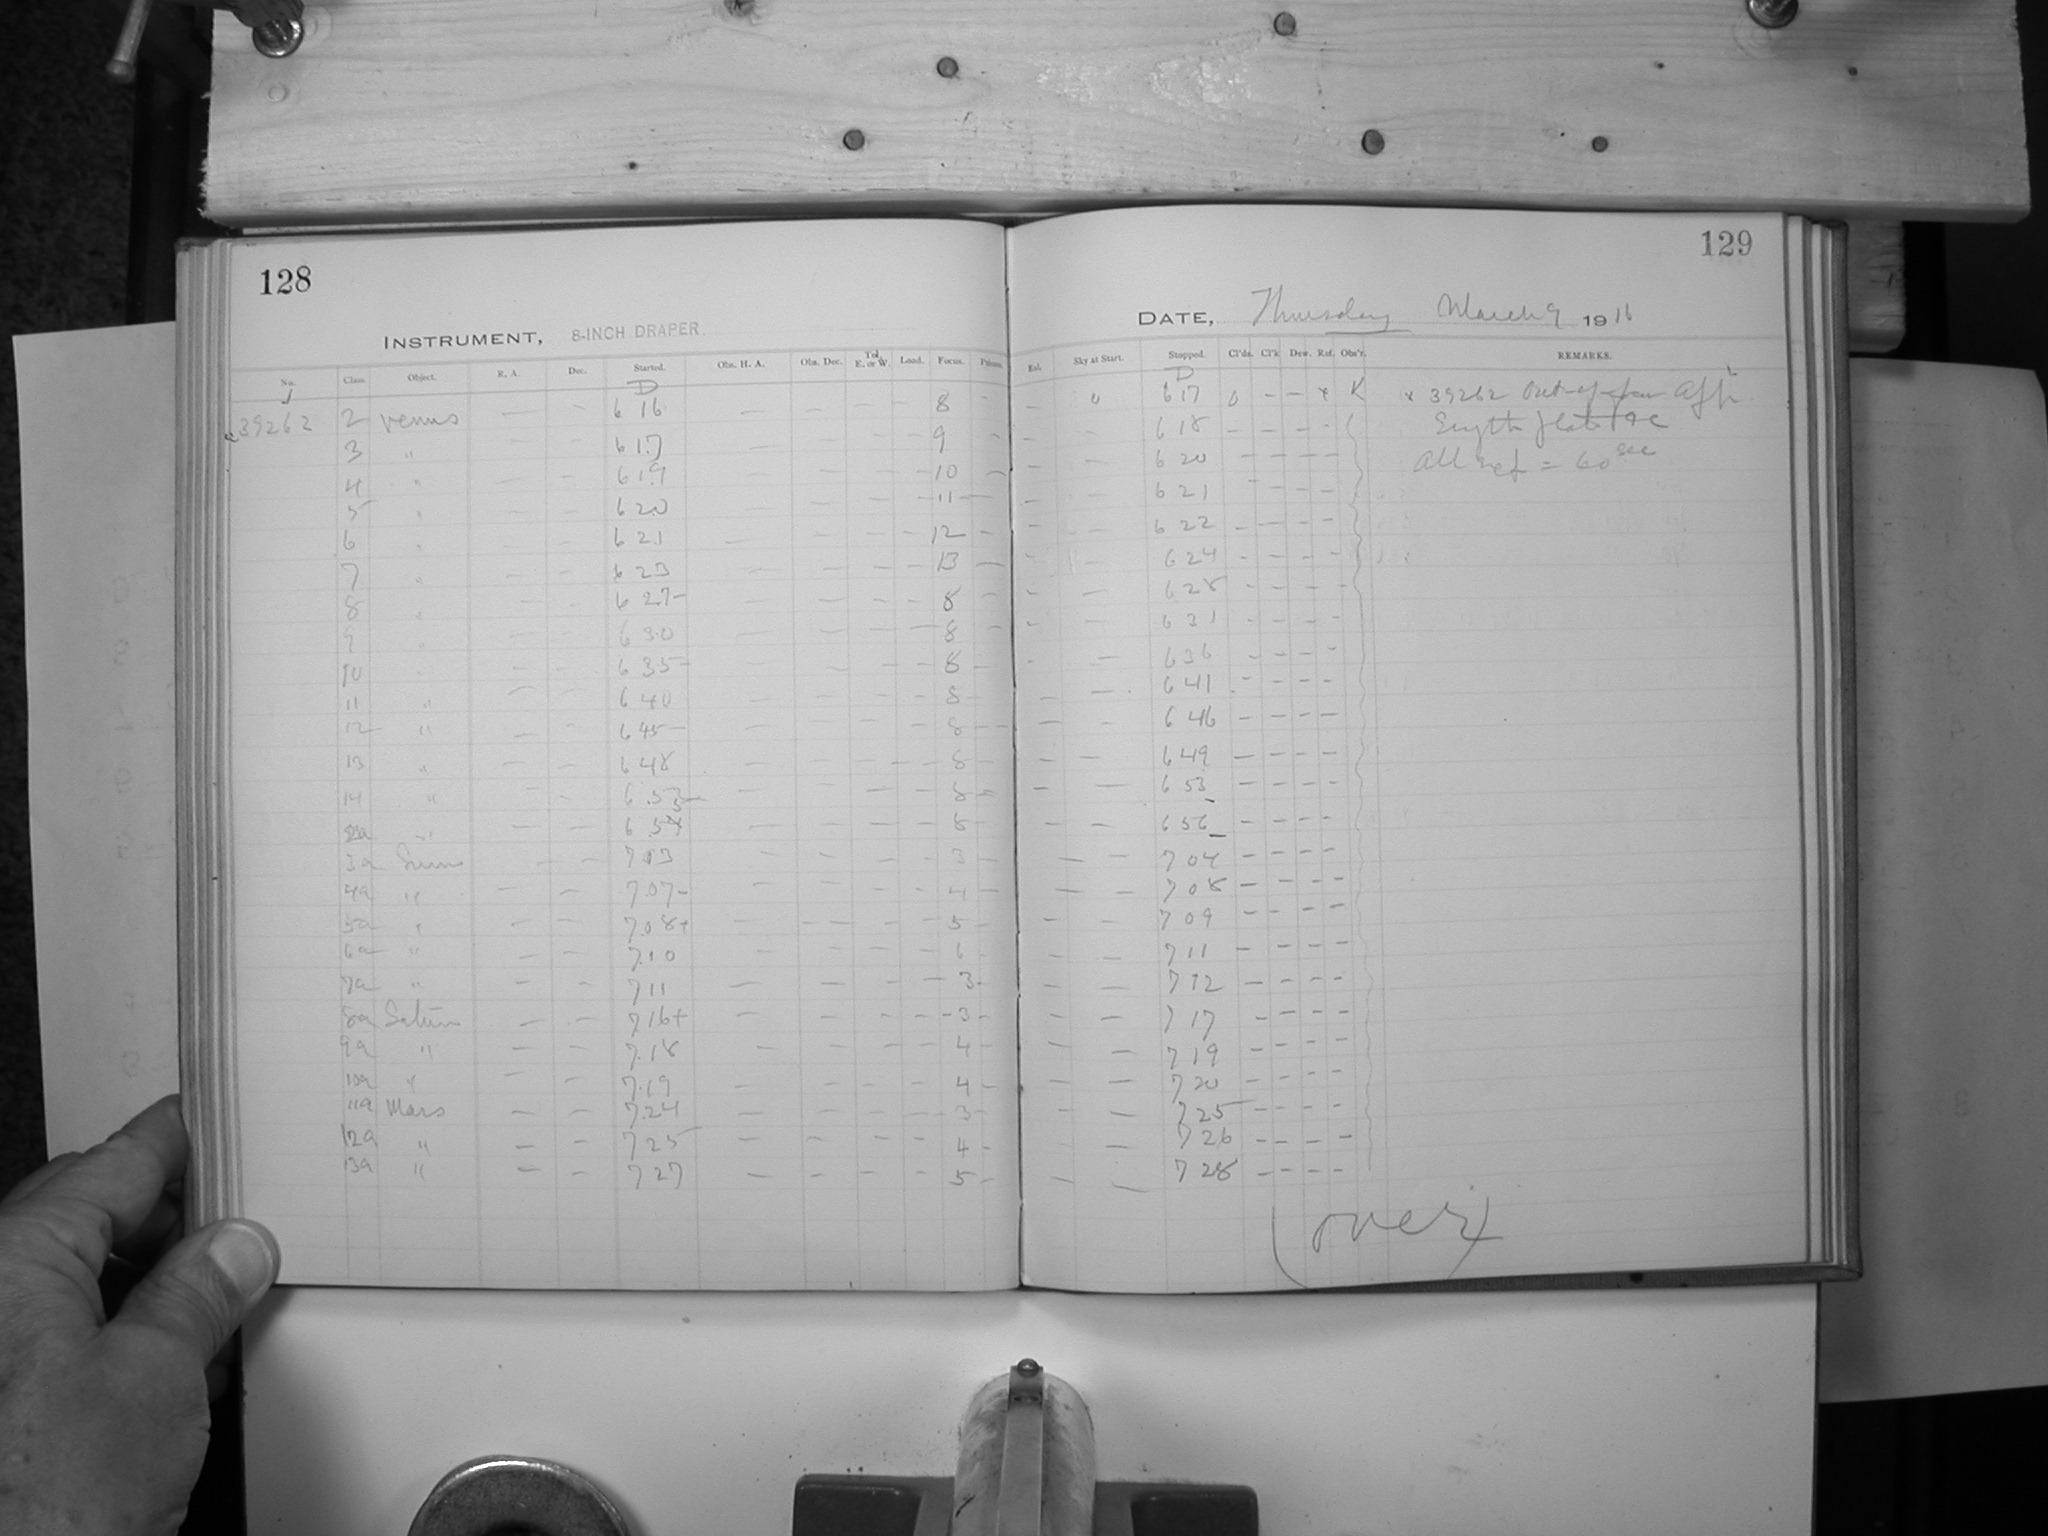 128
INSTRUMENT, 8-INCH DRAPER.
No. Class. Object. R. A. Dec. Started. Obs. H. A. Obs. Dec. Tel. E. or W. Load. Focus.
J D
39262 2 Venus — — 6 16 — — — — 8 -
3 " 6 17 — 9 -
4 " — — 6 19 — — — 10 —
5 " — — 6 20 — — — — 11 —
6 " — — 6 21 — — — — 12 —
7 " — — 6 23 — — — — 13 —
8 " — — 6 27- — — — — 8 —
9 " — — 6 30 — — — — 8 —
10 " — — 6 35- — — — — 8 -
11 " — — 6 40 — — — — 8 -
12 " — — 6 45- — — — — 8 —
13 " — — 6 48 — — — — 8 -
14 " — — 6 53- — — — — 8 -
" — — 6 — — — — 8 -
3a — — 7 03 — — — — 3 -
4a " — — 7 07- — — — — 4 -
5a " — — 7 08+ — — — — 5 -
6a " — — 7 10 — — — — 6 -
7a " — — 7 11 — — — — 3 -
8a Saturn — — 7 16+ — — — — 3 -
9a " — — 7 18 — — — — 4 -
10a " — — 7 19 — — — — 4 -
11a Mars — — 7 24 — — — — 3 -
12a " — — 7 25 — — — — 4 -
13a " — — 7 27 — — — — 5 -
129
DATE, Thursday March 9 1916
Exl. Sky at Start. Stopped. Cl'ds. Cl'k Dew. Ref. Obs'r. REMARKS.
D
— 0 6 17 0 - - x K x 39262 out-of-
— — 6 18 — — — -
— — 6 20 — — — — All ref = 60 sec
— — 6 21 - — — —
— — 6 22 - — - -
— 6 24 - — — -
- — 6 28 - - — -
- 6 31 - - - -
- — 6 36 - - - -
- — 6 41 - - - -
— — 6 46 - - - -
— — 6 49 — — - -
— — 6 53 - - - -
— — 6 56 - - - -
— — 7 04 - - - -
— — 7 08 - - - -
— — 7 09 - - - -
— — 7 11 - - - -
— — 7 12 - - - -
— — 7 17 - - - -
— — 7 19 - - - -
— — 7 20 - - - -
— — 7 25 - - - -
— 7 26 - - - -
— — 7 28 - - - -
(over)